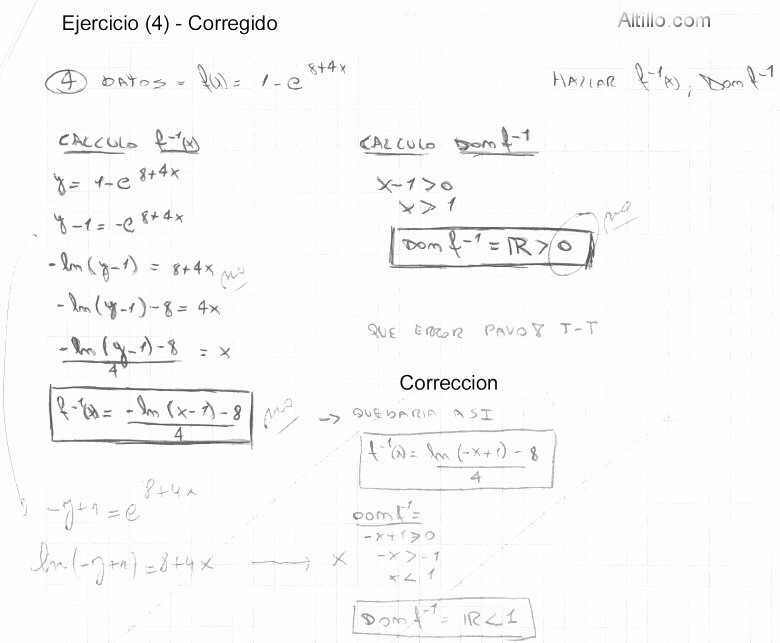 Ejercicio (4) - Corregido
Altillo.com
4 DATOS = f(x) = 1 - e^{8+4x}
HALLAR f^{-1}(x), Dom f^{-1}
CALCULO f^{-1}(x)
y = 1 - e^{8+4x}
y - 1 = -e^{8+4x}
-ln(y-1) = 8+4x no
-ln(y-1) - 8 = 4x
\frac{-ln(y-1) - 8}{4} = x
f^{-1}(x) = \frac{-ln(x-1) - 8}{4} no
-y+1 = e^{8+4x}
ln(-y+1) = 8+4x → x
CALCULO Dom f^{-1}
x-1 > 0
x > 1
Dom f^{-1} = ℝ > 0 no
QUE ERROR T-T
Correccion
→ QUEDARIA ASI
f^{-1}(x) = \frac{ln(-x+1) - 8}{4}
Dom f^{-1} =
-x+1 > 0
-x > -1
x < 1
Dom f^{-1} = ℝ < 1